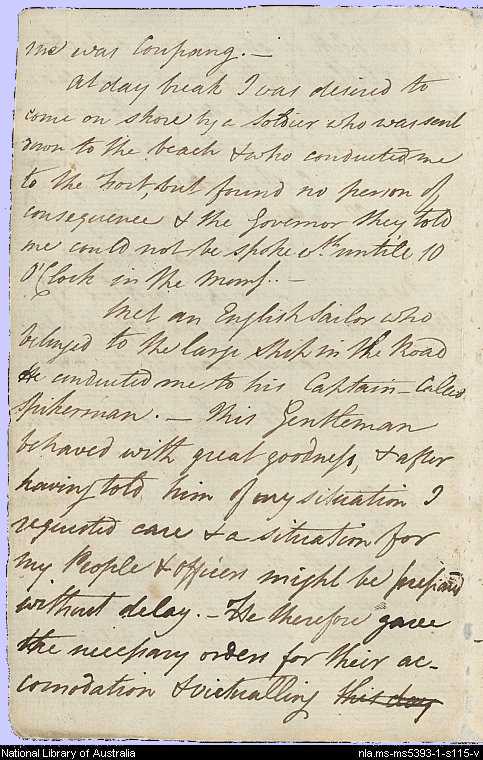 me was Coupang. —
At day break I was desired to
come on shore by a Soldier who was sent
down to the beach & who conducted me
to the Fort, but found no person of
consequence & the Governor they told
me could not be spoke wth. untile 10
O'Clock in the Morng. —
Met an English Sailor who
belonged to the large Ship in the Road
He conducted me to his Captain —
Spikerman. — This Gentleman
behaved with great goodness, & after
having told him of my situation I
requested care & a situation for
my People & officers might be prepared
without delay. — He therefore gave
the necessary orders for their ac-
comodation & victualling this day
National Library of Australia
nla.ms-ms5393-1-s115-v